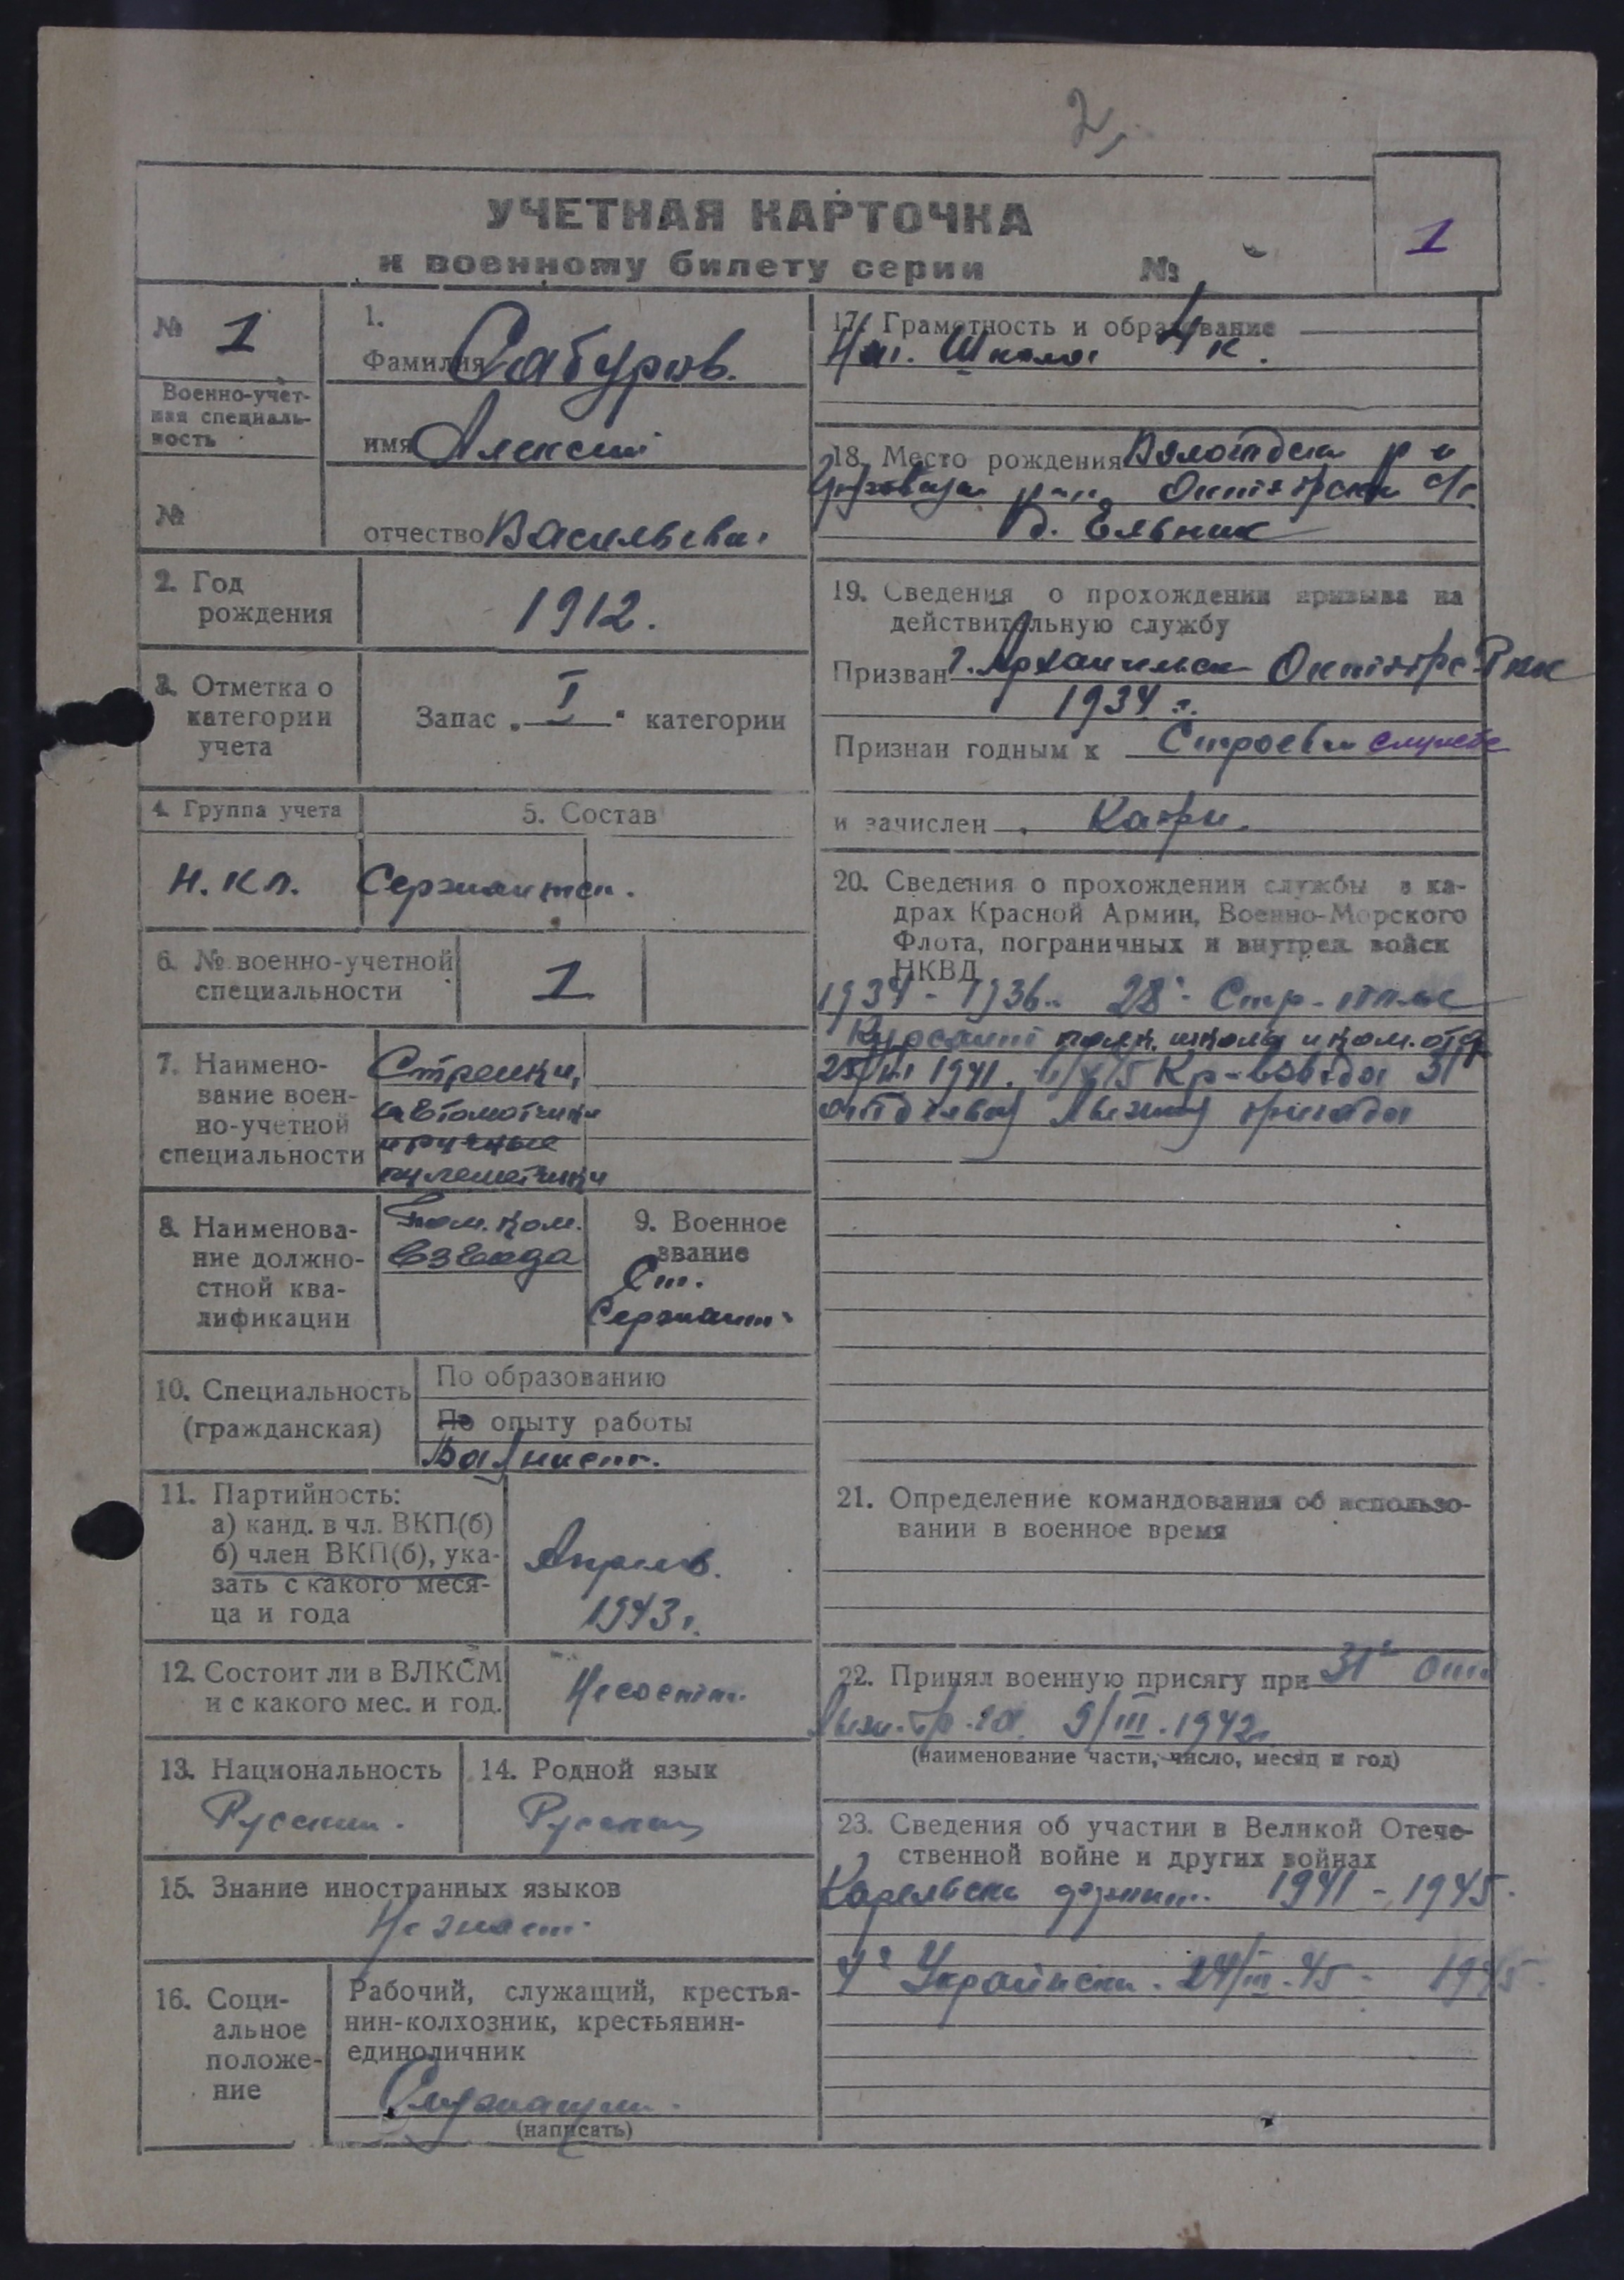 2,
УЧЕТНАЯ КАРТОЧКА
к военному билету серии №
1
№ 1
Военно-учет-
ная специаль-
ность
№
1.
Фамилия Сабуров.
имя Алексей
отчество Васильеви.
2. Год
рождения
1912.
3. Отметка о
категории
учета
Запас „ I " категории
4. Группа учета
5. Состав
Н.Кл.
Сержантск.
6. № военно-учетной
специальности
1
7. Наимено-
вание воен-
но-учетной
специальности
Стрелки,
автоматчики
и ручные
пулеметчики
8. Наименова-
ние должно-
стной ква-
лификации
Пом. ком.
взвода
9. Военное
звание
Ст.
Сержант
10. Специальность
(гражданская)
По образованию
По опыту работы
11. Партийность:
а) канд. в чл. ВКП(б)
б) член ВКП(б), ука-
зать с какого меся-
ца и года
Апрель.
1943 г.
12. Состоит ли в ВЛКСМ
и с какого мес. и год.
Не состит.
13. Национальность
Русский.
14. Родной язык
Русский
15. Знание иностранных языков
Не знает
16. Соци-
альное
положе-
ние
Рабочий, служащий, крестья-
нин-колхозник, крестьянин-
единоличник
Служащий.
(написать)
17. Грамотность и образование
Нач. Школа 4 к.
18. Место рождения Вологодск
р-н, Октябрск с/с
д. Ельник
19. Сведения о прохождении призыва на
действительную службу
Призван г. Архангельск Октябрс Рвк
1934 г.
Признан годным к Строевой службе
и зачислен Кадры.
20. Сведения о прохождении службы в ка-
драх Красной Армии, Военно-Морского
Флота, пограничных и внутрен. войск
НКВД
1934 - 1936 г. 28 Стр. полк
Курсант полк. школы и ком. отд
1941. Кр-взвода 31
отдельной Лыжной бригады
21. Определение командования об использо-
вании в военное время
22. Принял военную присягу при 31й Отд
Лыж. бр-га 9/III.1942г.
(наименование части, число, месяц и год)
23. Сведения об участии в Великой Отече-
ственной войне и других войнах
Карельск фронт. 1941 - 1945.
4й Украинск. 24/III.45 - 1945.